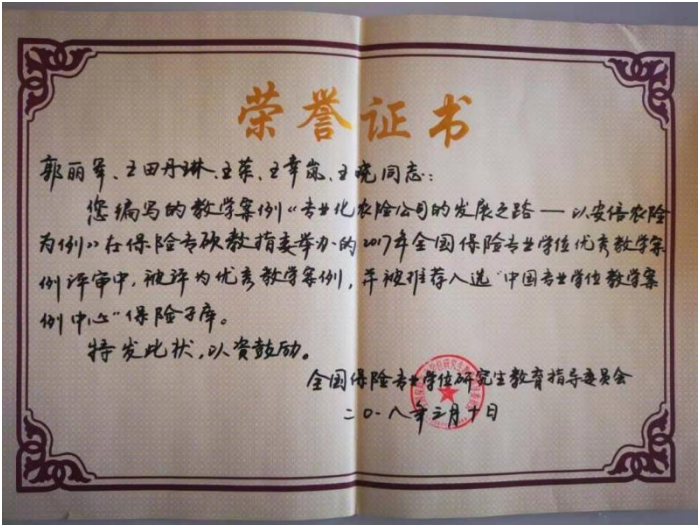 荣誉证书
郭丽军、王田丹琳、王荣、王幸岚、王晓同志：
您编写的教学案例《专业化农险公司的发展之路——以安信农险
为例》在保险专硕教指委举办的2017年全国保险专业学位优秀教学案
例评审中，被评为优秀教学案例，并被推荐入选“中国专业学位教学案
例中心”保险子库。
特发此状，以资鼓励。
全国保险专业学位研究生教育指导委员会
二〇一八年三月十日